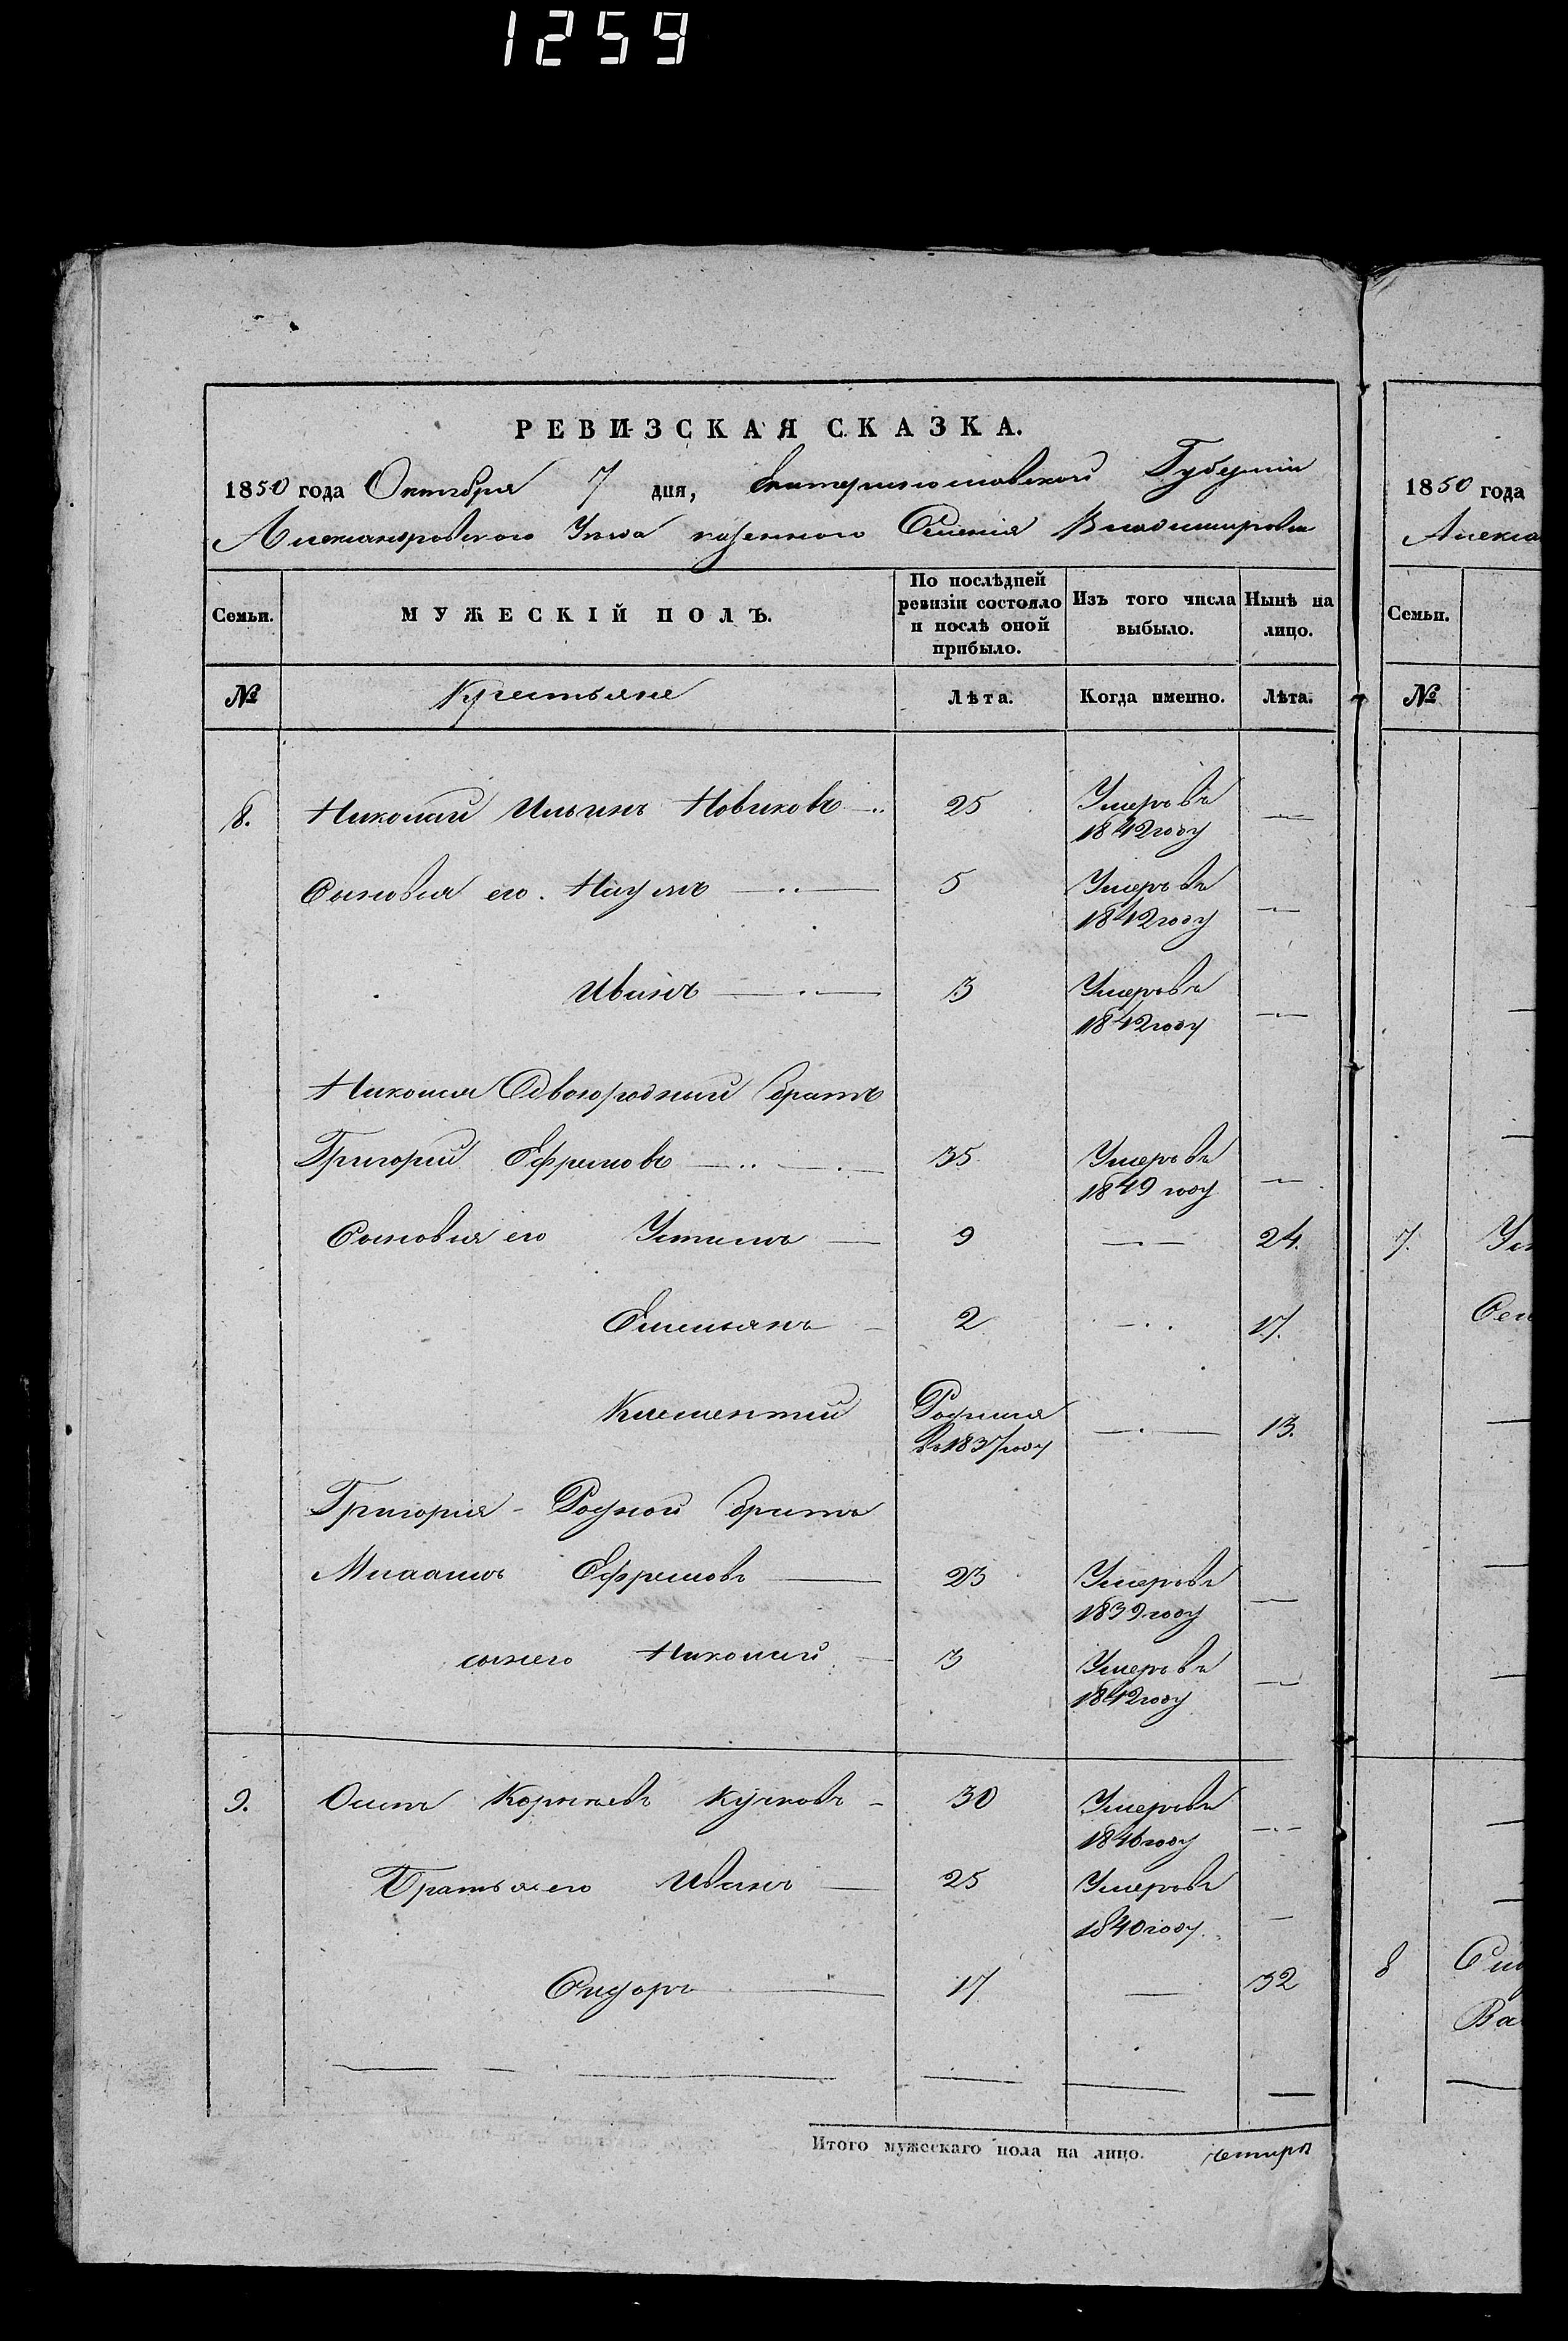 1259
РЕВИЗСКАЯ СКАЗКА.
1850 года Октября 7 дня, Екатеринославской Губернии
Александровского Уезда казенного Селения Владимировки
Семьи. МУЖЕСКІЙ ПОЛЪ. По послѣдней ревизіи состояло и послѣ оной прибыло. Изъ того числа выбыло. Нынѣ на лицо.
№ Крестьяне Лѣта. Когда именно. Лѣта.
8. Николай Ильинъ Новиковъ 25 Умеръ въ 1842 году —
Сыновья его. Наумъ 5 Умеръ въ 1842 году —
Иванъ 3 Умеръ въ 1842 году —
Николая Двоюродный братъ
Григорий Ефремовъ 35 Умеръ въ 1849 году —
Сыновья его Устимъ 9 — 24.
Емельянъ 2 — 17.
Клементий Родился въ 1837 году — 13.
Григория - Родной братъ
Ефремовъ 23 Умеръ въ 1839 году —
сынъ его Николай 3 Умеръ въ 1842 году —
9. Осипъ Корнѣевъ 30 Умеръ въ 1846 году —
Братья его Иванъ 25 Умеръ въ 1840 году —
Сидоръ 17 — 32
Итого мужескаго пола на лицо. четыре
1850 года
Алекса
Семьи.
№
7. Ус
8
Ва